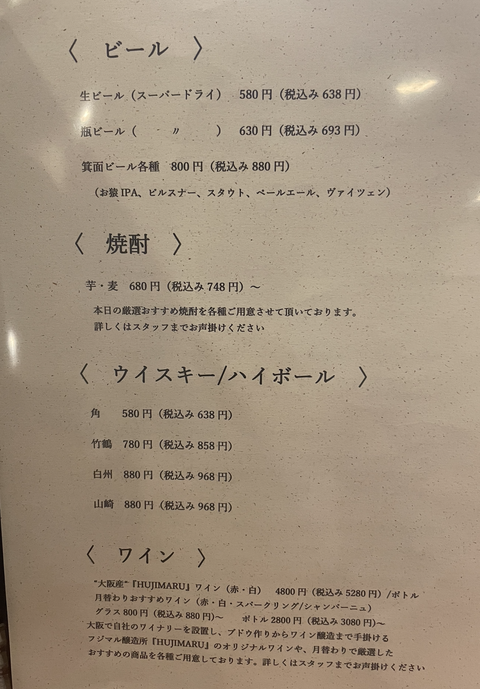 〈 ビール 〉
生ビール（スーパードライ） 580 円（税込み 638 円）
瓶ビール（ 〃 ） 630 円（税込み 693 円）
箕面ビール各種 800 円（税込み 880 円）
（お猿 IPA、ピルスナー、スタウト、ペールエール、ヴァイツェン）
〈 焼酎 〉
芋・麦 680 円（税込み 748 円）～
本日の厳選おすすめ焼酎を各種ご用意させて頂いております。
詳しくはスタッフまでお声掛けください
〈 ウイスキー/ハイボール 〉
角 580 円（税込み 638 円）
竹鶴 780 円（税込み 858 円）
白州 880 円（税込み 968 円）
山崎 880 円（税込み 968 円）
〈 ワイン 〉
"大阪産"『HUJIMARU』ワイン（赤・白） 4800 円（税込み 5280 円）/ボトル
月替わりおすすめワイン（赤・白・スパークリング/シャンパーニュ）
グラス 800 円（税込み 880 円)～ ボトル 2800 円（税込み 3080 円)～
大阪で自社のワイナリーを設置し、ブドウ作りからワイン醸造まで手掛ける
フジマル醸造所『HUJIMARU』のオリジナルワインや、月替わりで厳選した
おすすめの商品を各種ご用意しております。詳しくはスタッフまでお声掛けください